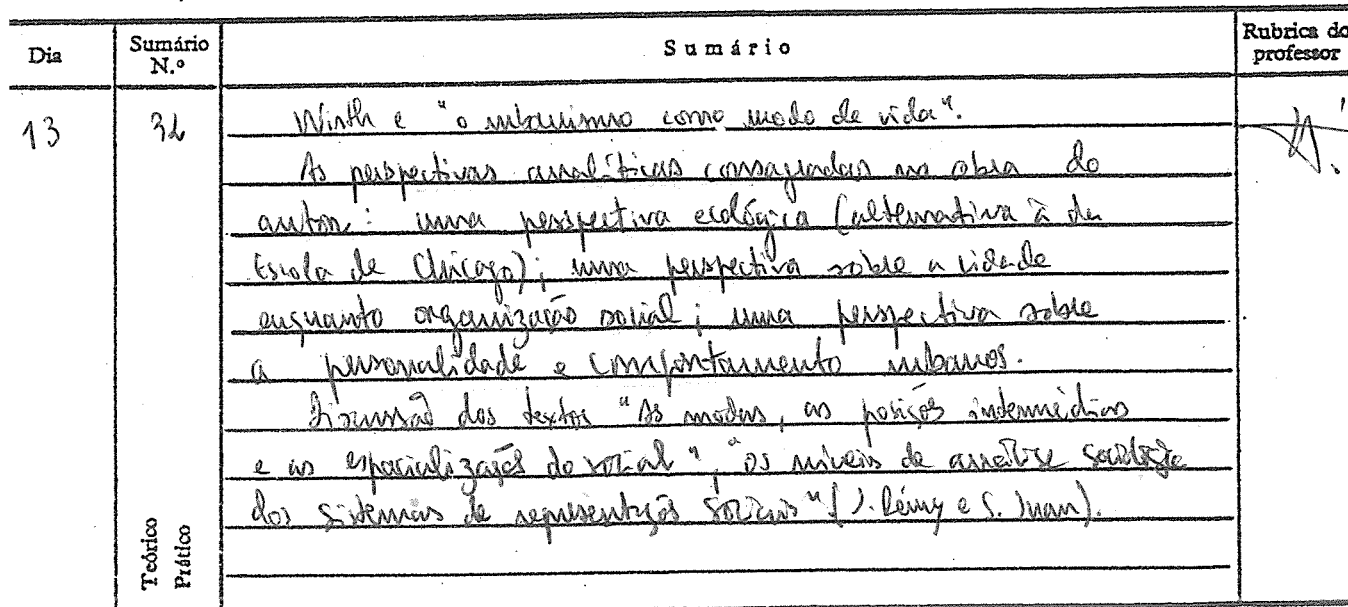 Dia
Sumário N.º
Sumário
Rubrica do professor
13
32
Wirth e "o urbanismo como modo de vida".
As perspectivas analíticas consagradas na obra do
autor: uma perspectiva ecológica (alternativa à da
Escola de Chicago); uma perspectiva sobre a cidade
enquanto organização social; uma perspectiva sobre
a personalidade e comportamento urbanos.
Discussão dos textos "As modas, as posições intermédias
e as espacializações do social", "Os níveis de análise
dos sistemas de representações sociais" (J. Rémy e S. Juan).
Teórico
Prático